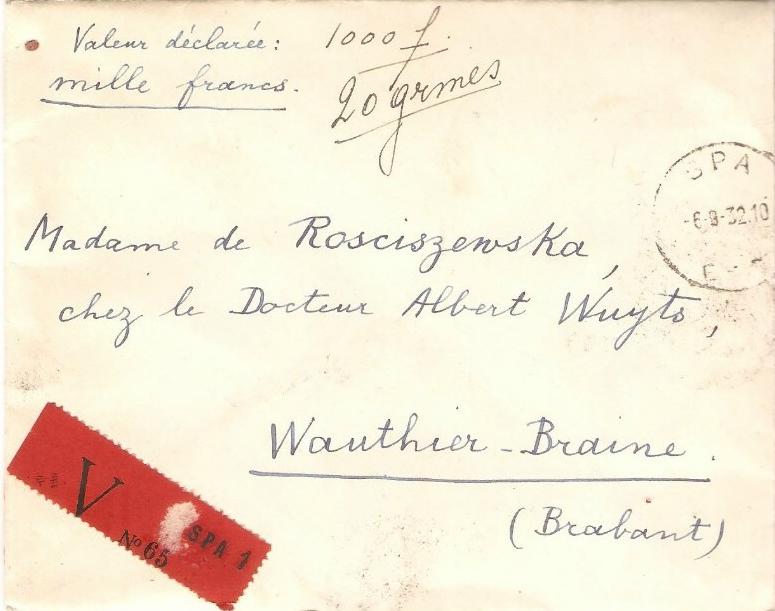 Valeur déclarée: 1000 f.
mille francs.
20 grmes
SPA
-6-8-32.10
Madame de Rosciszewska,
chez le Docteur Albert Wuyts,
Wauthier-Braine.
(Brabant)
V
No 65
SPA 1